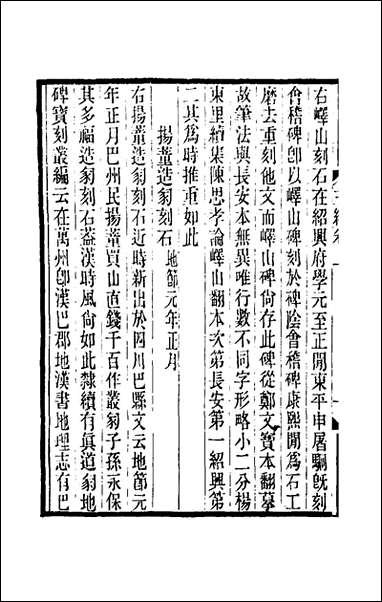 右嶧山刻石在紹興府學元至正閒東平申屠駉旣刻
會稽碑卽以嶧山碑刻於碑陰會稽碑康熙閒爲石工
磨去重刻他文而嶧山碑尙存此碑從鄭文寶本翻摹
故筆法與長安本無異唯行數不同字形略小二分楊
東里續集陳思孝論嶧山翻本次第長安第一紹興第
二其爲時推重如此
揚𤴯造冢刻石地節元年正月
右揚𤴯造冢刻石近時新出於四川巴縣文云地節元
年正月巴州民揚𤴯買山直錢千百作叢冢子孫永保
其多福造冢刻石葢漢時風尙如此隸續有眞道冢地
碑寶刻叢編云在萬州卽漢巴郡地漢書地理志有巴